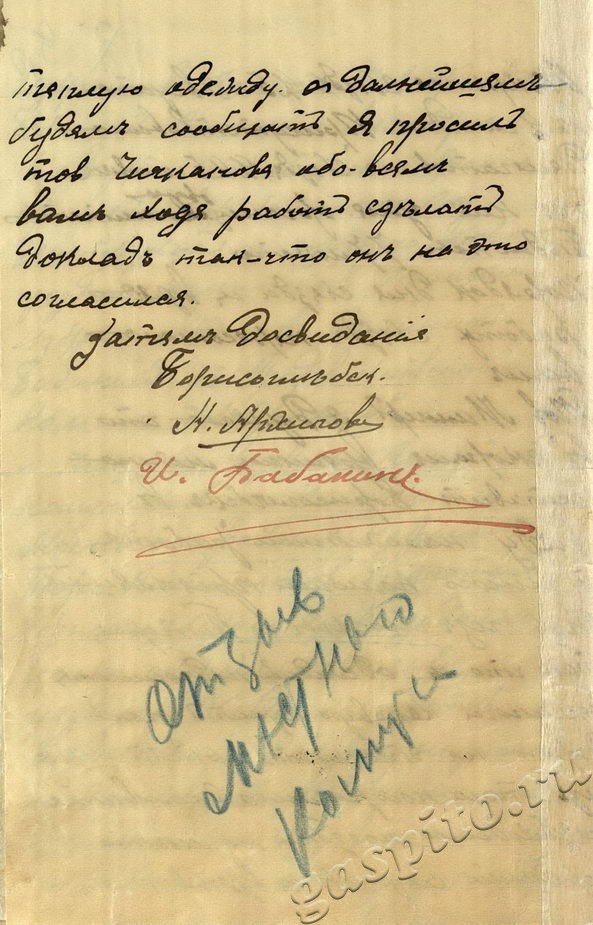 теплую одежду. о дальнѣйшемъ
будемъ сообщать Я просилъ
тов Чичканова обо-всемъ
вамъ ходя работъ сдѣлать
докладъ так-что онъ на это
согласился.
Затемъ Досвиданія
Борисоглѣбск.
Н. Архипов
И. Бабанинъ.
Отзыв
мѣстного
gaspito.ru